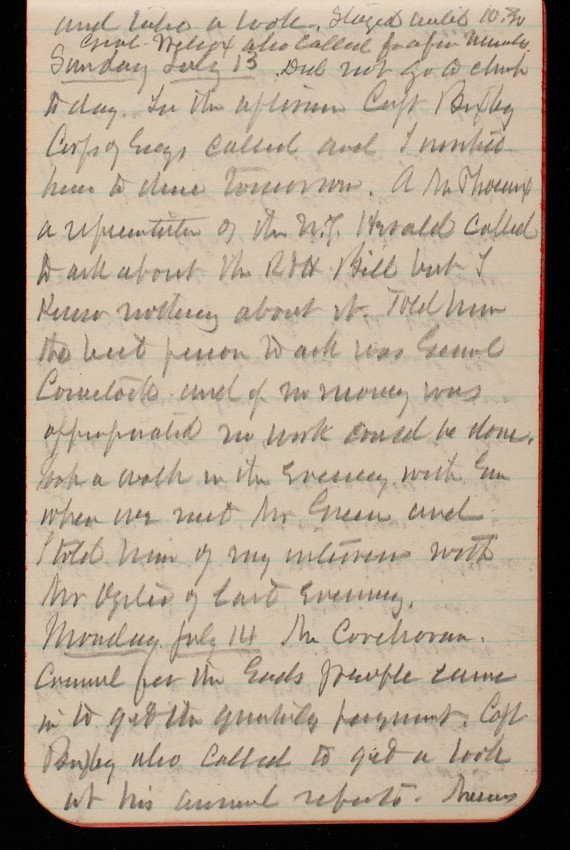 and take a look. Stayed until 10.30
Genl. Wilcox also called for a few minutes.
Sunday July 13 Did not go to church
to day. In the afternoon Capt Bixby
Corps of Engs called and I invited
him to dine tomorrow. A Mr Thoeux
a representative of the N.Y. Herald called
to ask about the R & H Bill but I
knew nothing about it. Told him
the best person to ask was Genl
Comstock and if no money was
appropriated no work could be done.
took a walk in the Evening with Em
when we met Mr Green and
I told him of my interview with
Mr of last Evening.
Monday July 14 Mr Corchoran.
Counsel for the Eads people came
in to get the quarterly payment. Capt
Bixby also called to get a look
at his annual reports.